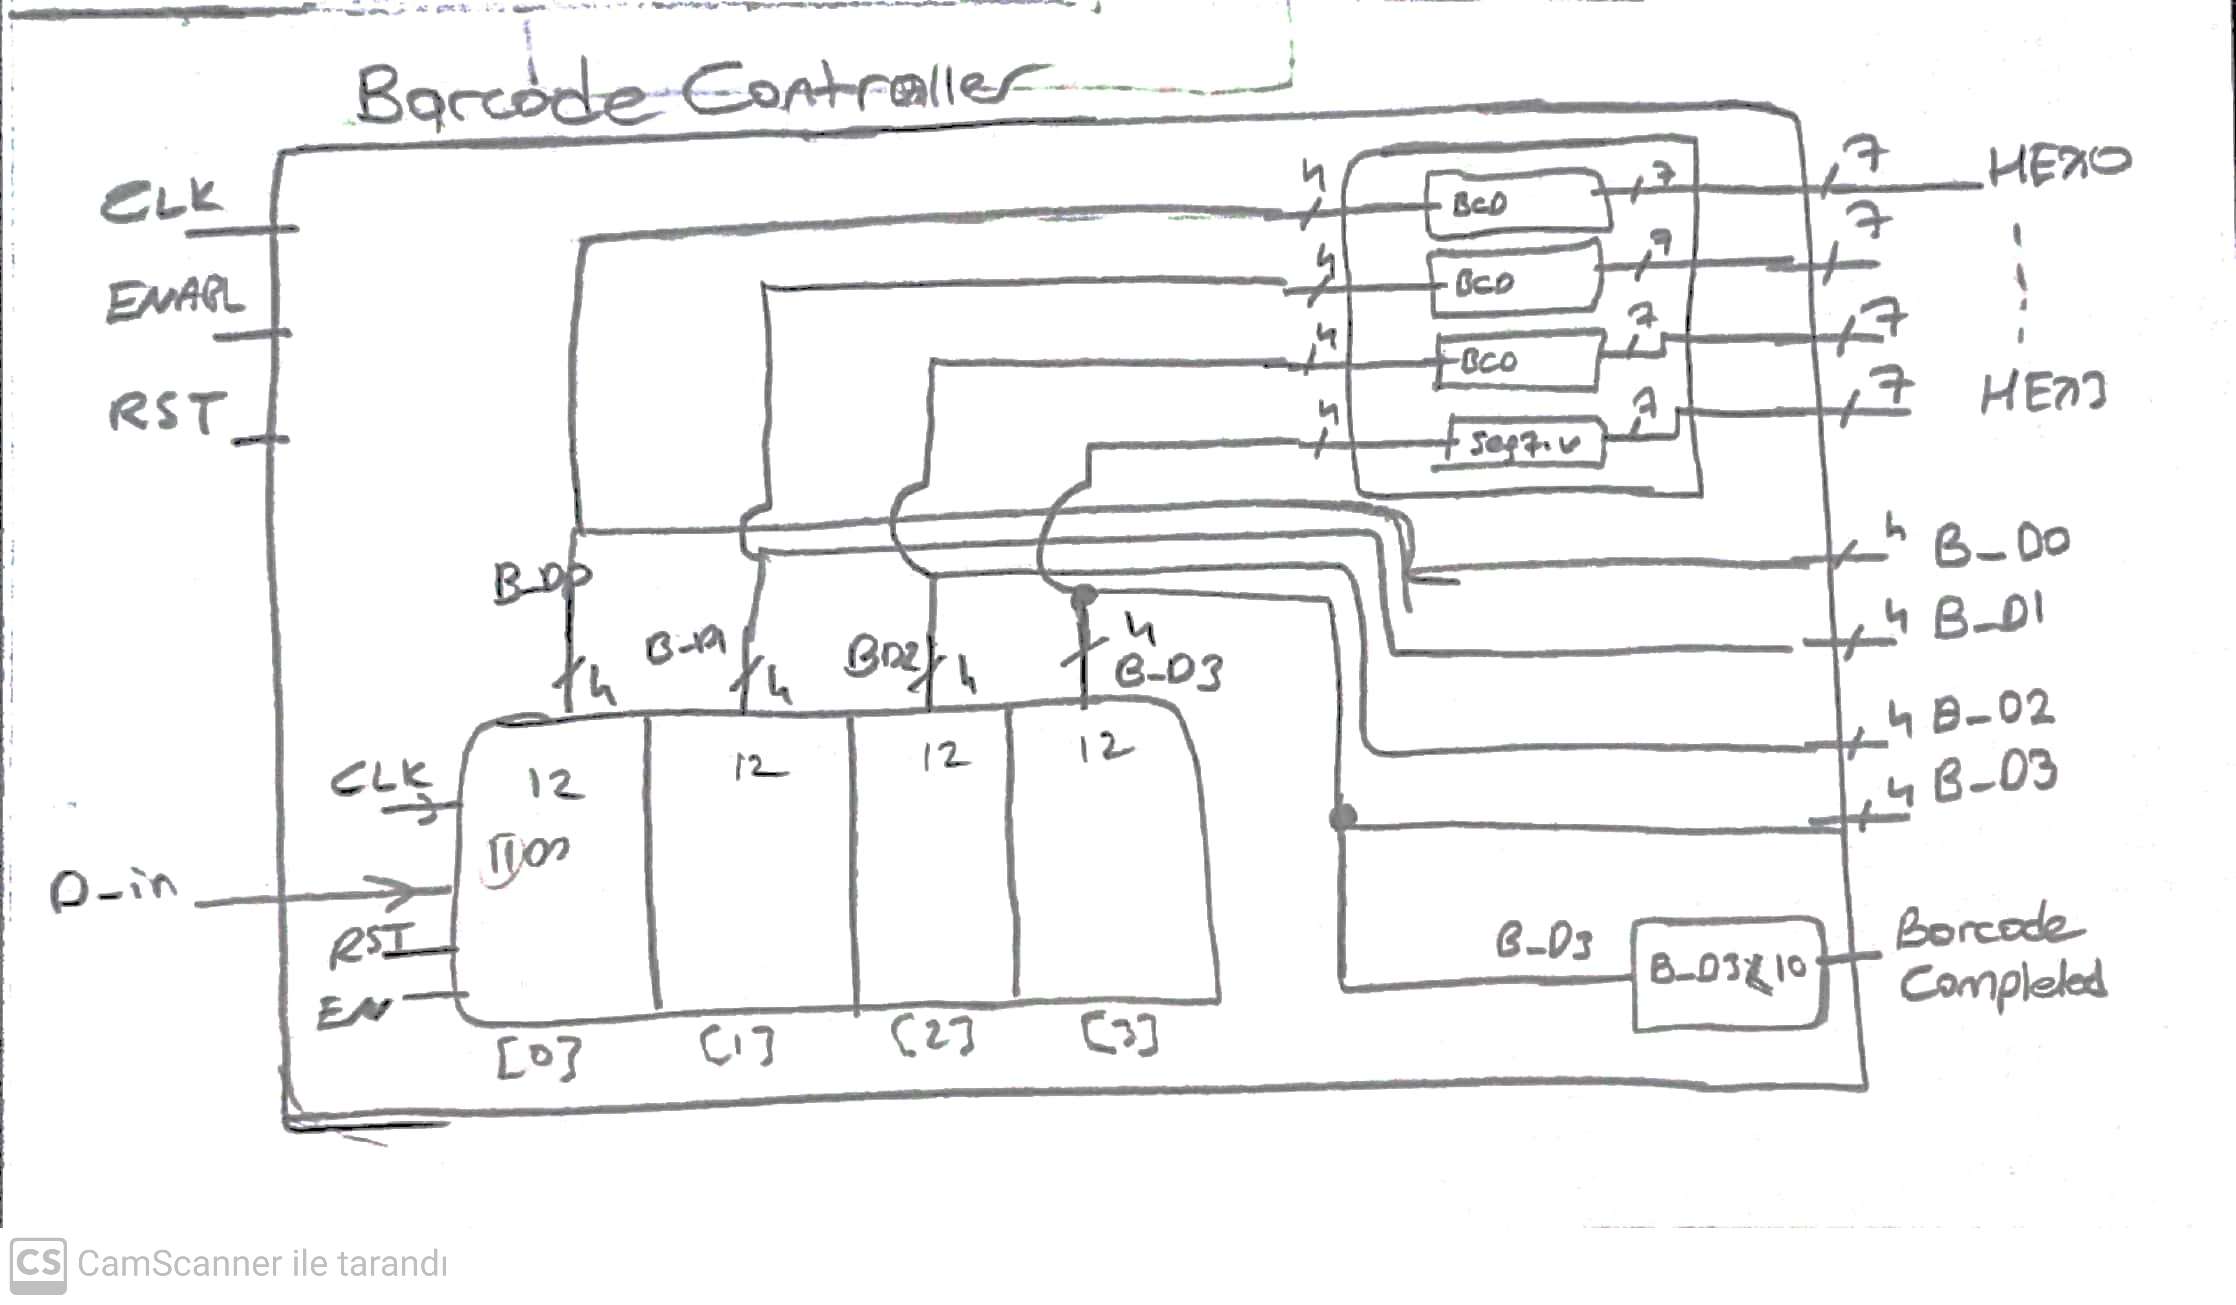 Barcode Controller
CLK
ENABL
RST
4
BCD
7
7
HEX0
4
BCD
7
7
4
BCD
7
7
4
Seg7.v
7
7
HEX3
B_D0
4
B_D1
4
BD2
4
4
B_D3
4 B_D0
4 B_D1
4 B_D2
4 B_D3
CLK
12
12
12
12
1100
D_in
RST
EN
[0]
[1]
[2]
[3]
B_D3
10
Barcode
Completed
CS CamScanner ile tarandı